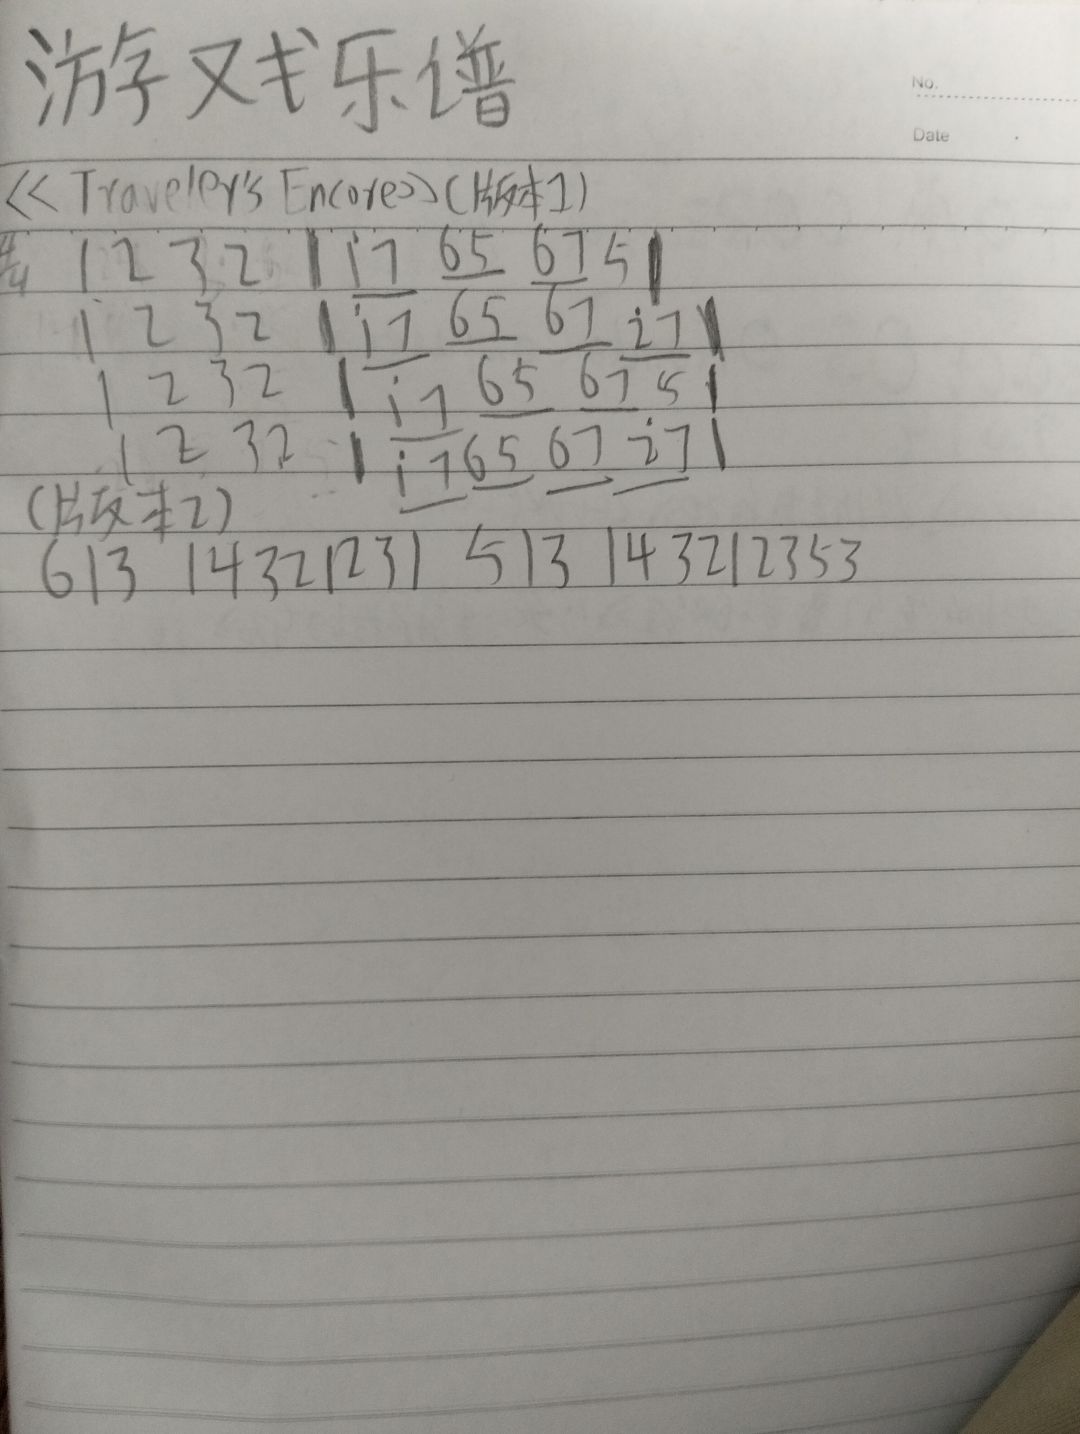 游戏乐谱
No.
Date
<<Traveler's Encore>>(版本1)
4/4 1 2 3 2 | i7 65 67 5 |
1 2 3 2 | i7 65 67 i7 |
1 2 3 2 | i7 65 67 5 |
1 2 3 2 | i7 65 67 i7 |
(版本2)
613 14321231 513 143212353